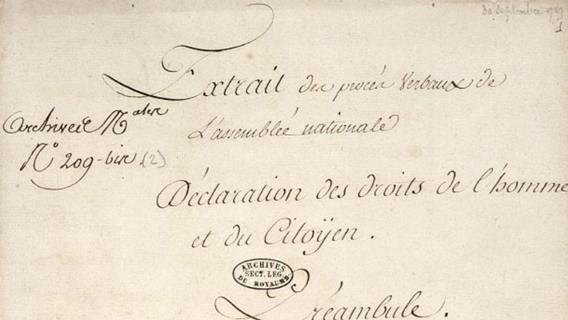 30 Septembre 1789
1
Extrait des procès Verbaux de
L'assemblée nationale
archives N^ales
N° 209-bis (2)
Déclaration des droits de l'homme
et du Citoÿen.
ARCHIVES
SECT. LEG.
DU ROYAUME
Préambule.